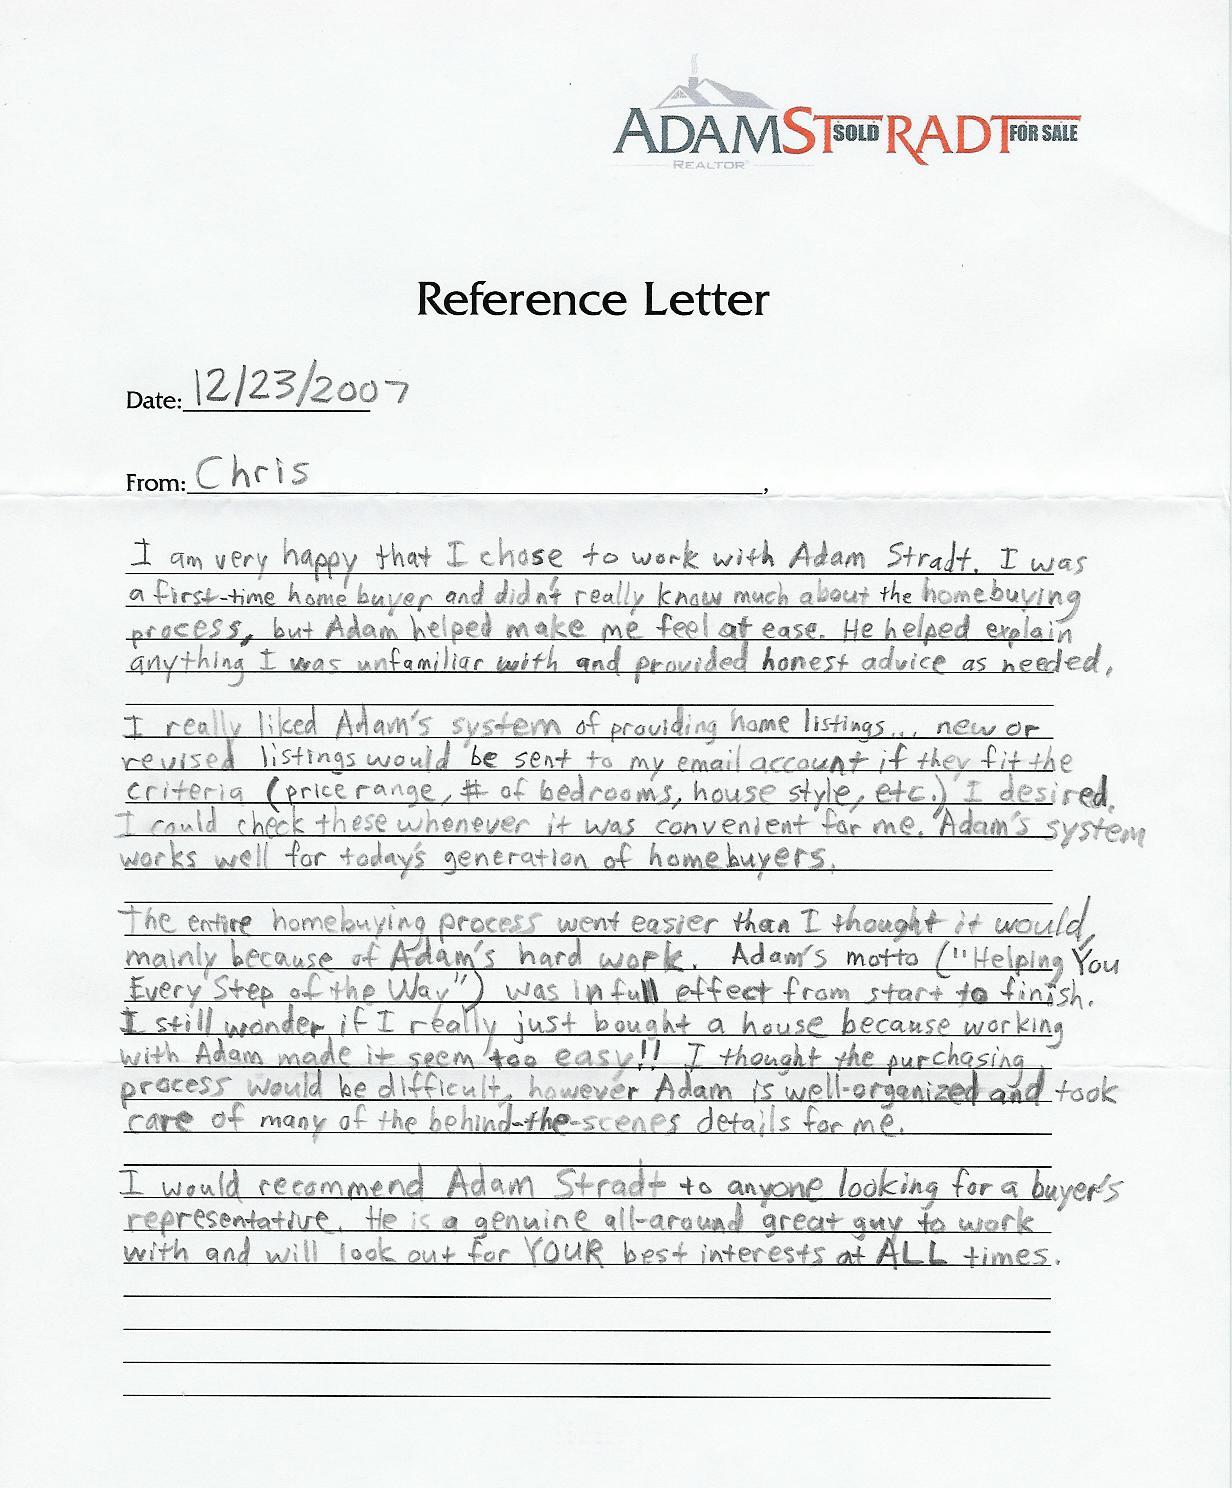 ADAM STRADT
SOLD
FOR SALE
REALTOR®
Reference Letter
Date: 12/23/2007
From: Chris,
I am very happy that I chose to work with Adam Stradt. I was
a first-time home buyer and didn't really know much about the homebuying
process, but Adam helped make me feel at ease. He helped explain
anything I was unfamiliar with and provided honest advice as needed.
I really liked Adam's system of providing home listings... new or
revised listings would be sent to my email account if they fit the
criteria (price range, # of bedrooms, house style, etc.) I desired.
I could check these whenever it was convenient for me. Adam's system
works well for today's generation of homebuyers.
The entire homebuying process went easier than I thought it would,
mainly because of Adam's hard work. Adam's motto ("Helping You
Every Step of the Way") was in full effect from start to finish.
I still wonder if I really just bought a house because working
with Adam made it seem too easy!! I thought the purchasing
process would be difficult, however Adam is well-organized and took
care of many of the behind-the-scenes details for me.
I would recommend Adam Stradt to anyone looking for a buyer's
representative. He is a genuine all-around great guy to work
with and will look out for YOUR best interests at ALL times.